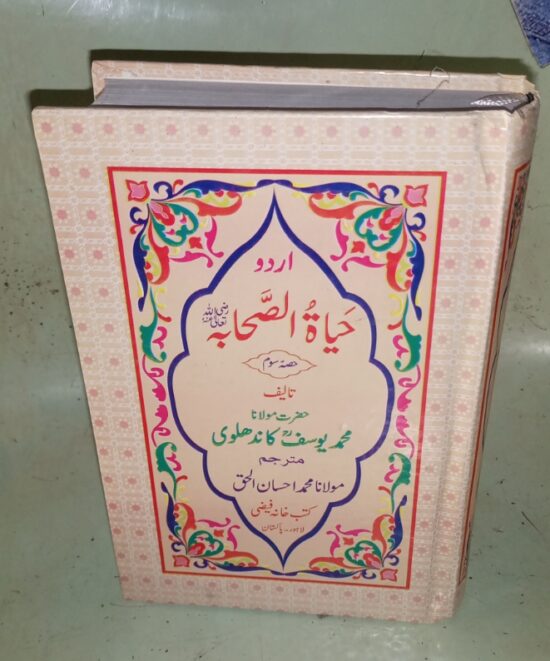 اردو
حَیاۃُ الصَّحابہ رضی اللہ تعالیٰ عنہم
حصہ سوم
تالیف
حضرت مولانا
محمد یوسفؒ کاندھلوی
مترجم
مولانا محمد احسان الحق
کتب خانہ فیضی
لاہور - پاکستان